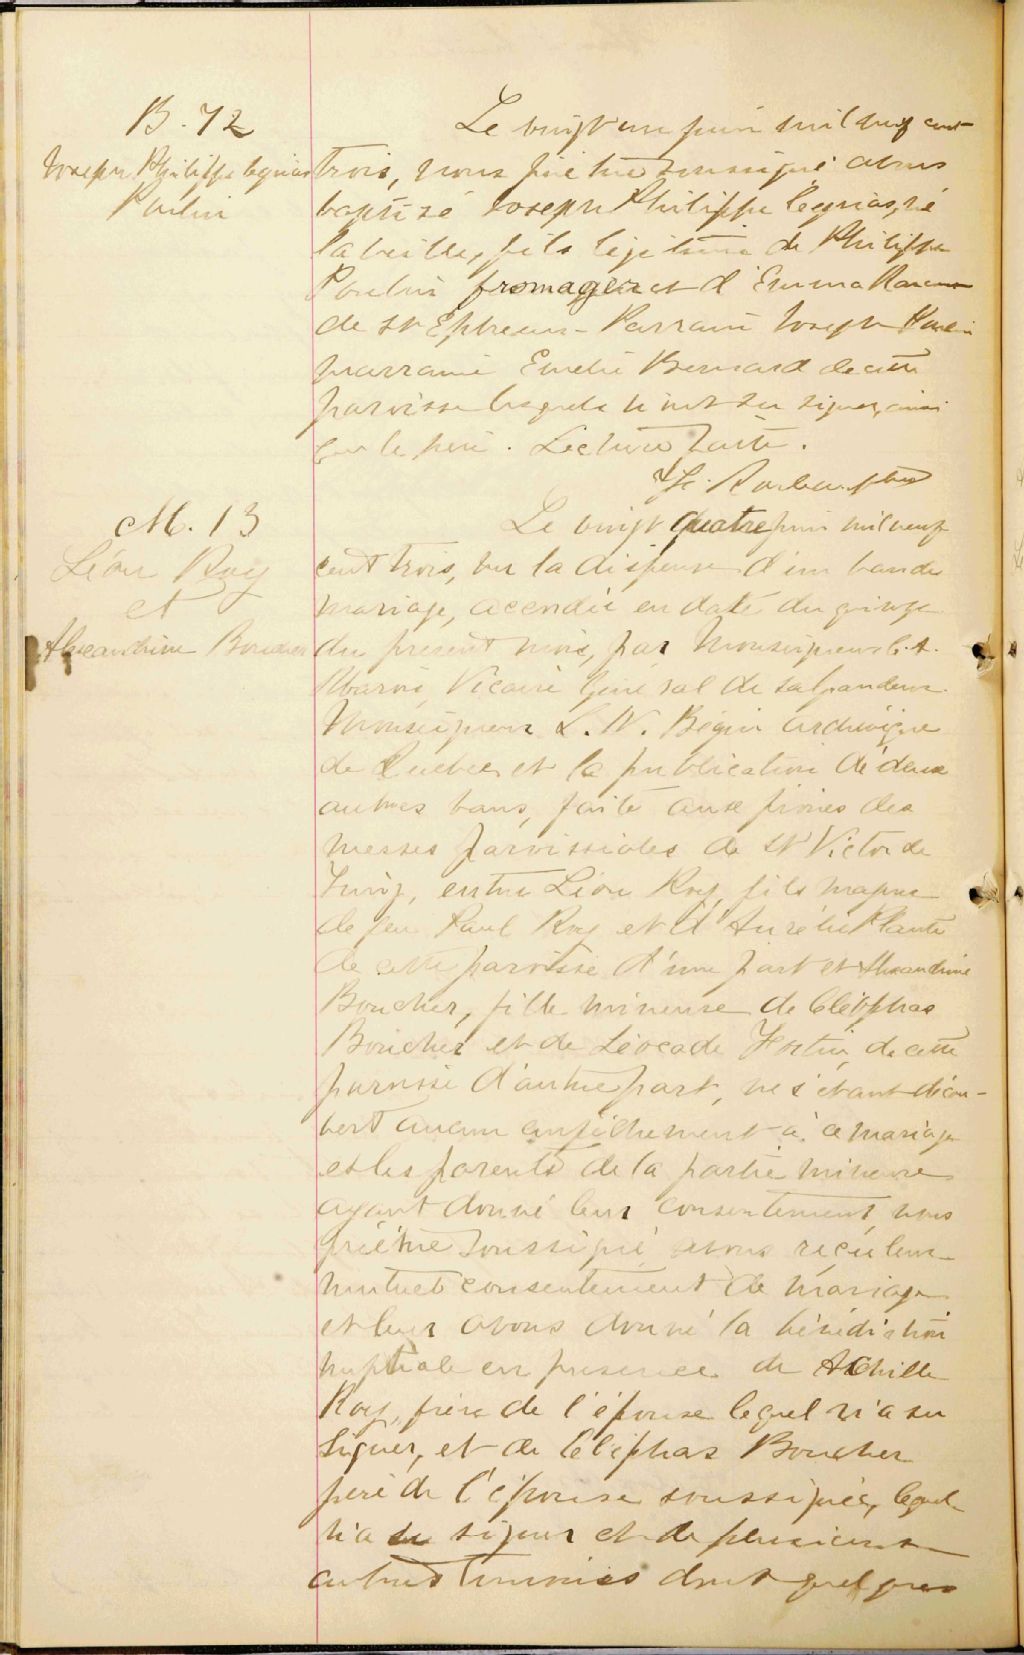 B. 72
Joseph Philippe
Poulin
Le vingt un juin mil neuf cent
trois, nous prêtre soussigné avons
baptisé Joseph Philippe né
la veille, fils légitime de Philippe
Poulin fromager et d'Emma
de St Ephrem - Parrain Joseph Poulin
marraine Emelie Bernard de cette
paroisse lesquels n'ont su signer, ainsi
que le père. Lecture faite.
ptre
M. 13
Léon Roy
et
Alexandrine Boucher
Le vingt quatre juin mil neuf
cent trois, vu la dispense d'un ban de
mariage, accordée en date du quinze
du présent mois, par Monseigneur C. A.
Marois, Vicaire Général de sa Grandeur
Monseigneur L. N. Bégin archevêque
de Quebec et la publication de deux
autres bans, faite aux prônes des
messes paroissiales de St Victor de
Tring, entre Léon Roy, fils majeur
de feu Paul Roy et d'Aurélie Plante
de cette paroisse d'une part et Alexandrine
Boucher, fille mineure de Cléophas
Boucher et de Léocade Fortin, de cette
paroisse d'autre part, ne s'étant décou-
vert aucun empêchement à ce mariage
et les parents de la partie mineure
ayant donné leur consentement, nous
prêtre soussigné avons reçu leur
mutuel consentement de mariage
et leur avons donné la bénédiction
nuptiale en présence de Achille
Roy, frère de l'épouse lequel n'a su
signer, et de Cléophas Boucher
père de l'épouse soussignée, lequel
n'a su signer et de plusieurs
autres témoins dont quelques